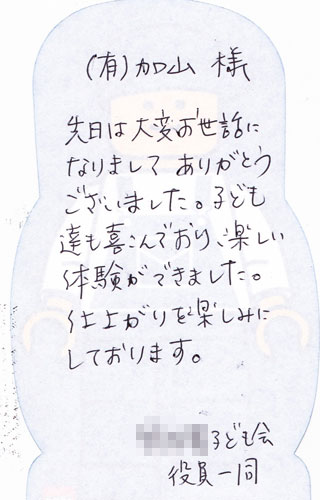 (有)加山 様
先日は大変お世話に
なりまして ありがとう
ございました。子ども
達も喜こんでおり、楽しい
体験ができました。
仕上がりを楽しみに
しております。
子ども会
役員一同